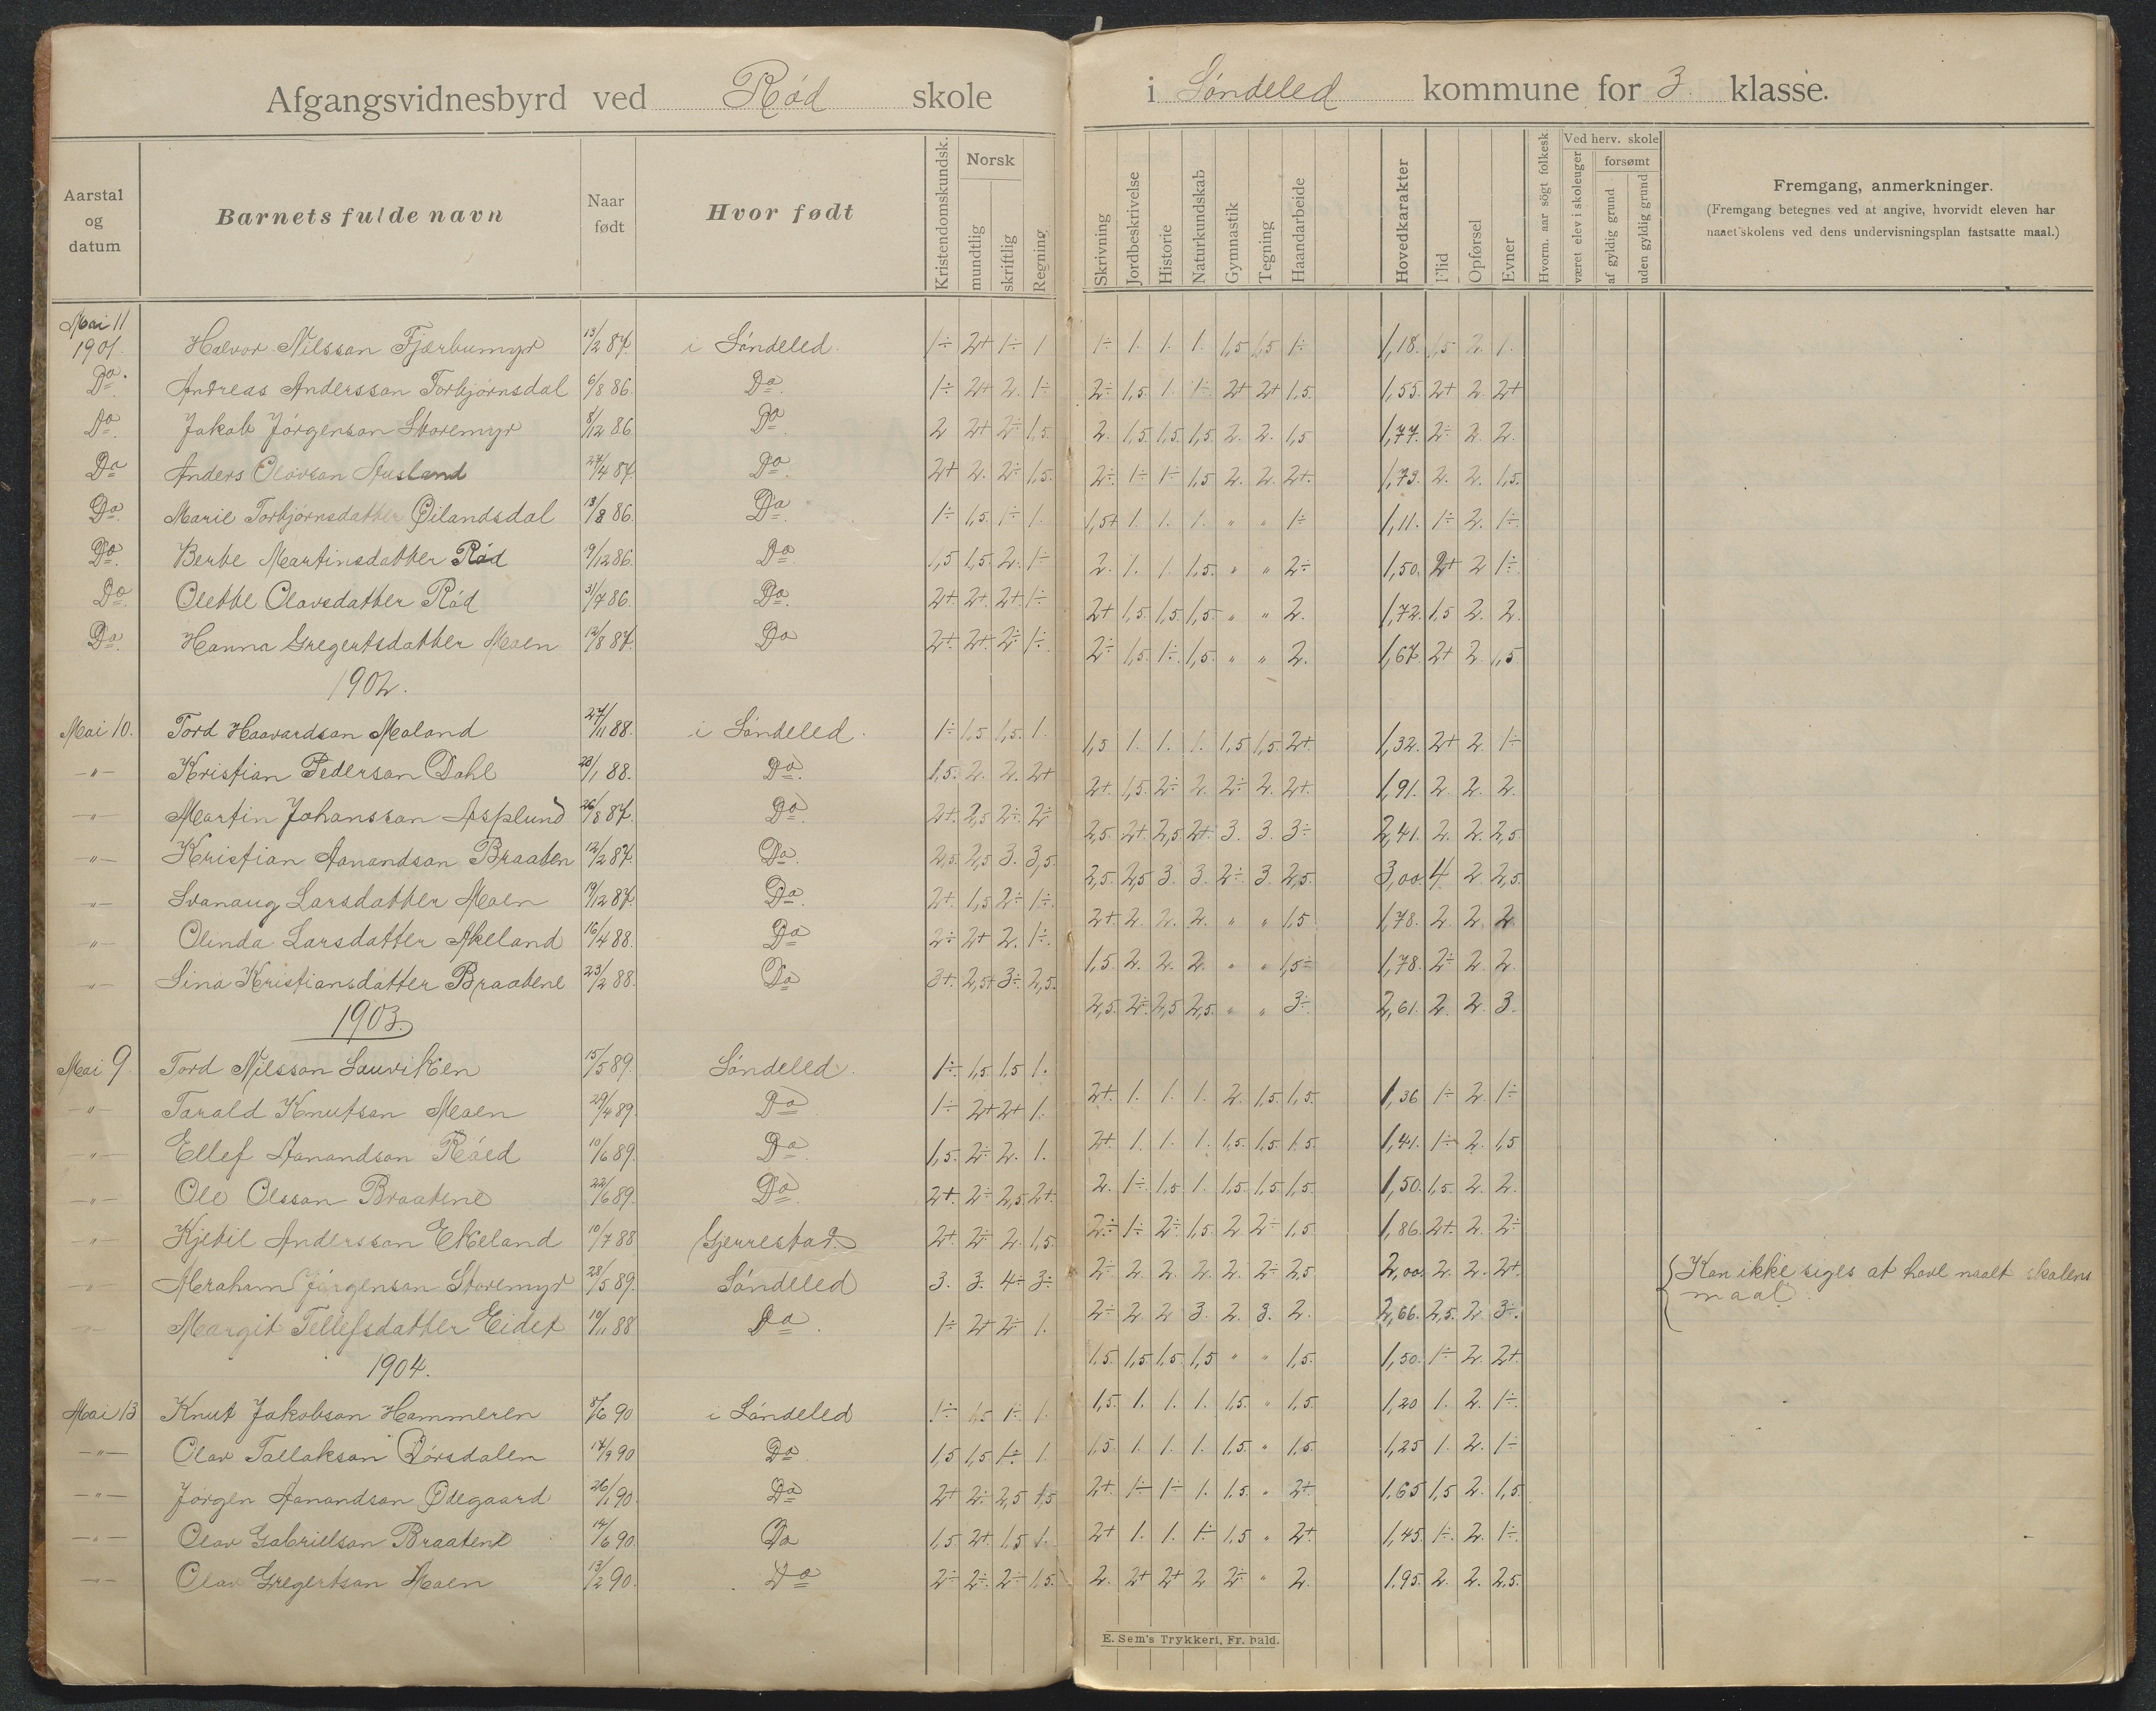 Afgangsvidnesbyrd ved Rød skole i Søndeled kommune for 3. klasse.
Aarstal og datum | Barnets fulde navn | Naar født | Hvor født | Kristendomskundsk. | Norsk mundtlig | skriftlig | Regning | Skrivning | Jordbeskrivelse | Historie | Naturkundskab | Gymnastik | Tegning | Haandarbeide | Hovedkarakter | Flid | Opførsel | Evner | Hvorm. aar søgt folkesk | Ved herv. skole været elev i skoleuger | forsømt af gyldig grund | uden gyldig grund | Fremgang, anmerkninger.
(Fremgang betegnes ved at angive, hvorvidt eleven har
naaet skolens ved dens undervisningsplan fastsatte maal.)
Mai 11
1901. Halvor Nilsson Fjærbumyr 13/2 87. i Søndeled. 1÷ 2+ 1÷ 1 1÷ 1. 1. 1. 1,5 1,5 1÷ 1,18. 1,5 2. 1.
Do. Andreas Anderssan Torbjørnsdal 6/8 86. Do. 1÷ 2+ 2. 1÷ 2÷ 1,5. 1 1÷ 2+ 2+ 1,5. 1,55. 2+ 2. 2+
Do. Jakob Jørgensan Storemyr 8/12 86. Do. 2 2+ 2÷ 1,5. 2. 1,5. 1,5. 1,5. 2. 2. 1,5 1,77. 2÷ 2. 2.
Do Anders Olavsan Ausland 27/4 87. Do. 2+ 2. 2÷ 1,5. 2÷ 1÷ 1÷ 1,5 2. 2. 2+. 1,73. 2. 2. 1,5.
Do. Marie Torbjørnsdatter Øilandsdal 13/8 86. Do. 1÷ 1,5. 1÷ 1. 1,5+ 1. 1. 1. " " 1÷ 1,11. 1÷ 2. 1÷
Do. Berte Martinsdatter Rød 9/12 86. Do. 1,5 1,5. 2. 1÷ 2. 1. 1. 1,5. " " 2÷ 1,50. 2+ 2 1÷
Do. Olette Olavsdatter Rød 31/7 86. Do. 2+. 2+. 2+. 1÷ 2+ 1,5. 1,5. 1,5. " " 2. 1,72. 1,5 2. 2.
Do. Hanna Gregertsdatter Moen 12/8 87. Do 2+. 2+. 2÷. 1÷. 2÷ 1,5. 1÷. 1,5. " " 2. 1,67. 2+ 2. 1,5
1902.
Mai 10. Tord Haavardsan Moland 27/11 88. i Søndeled. 1÷ 1,5 1,5. 1. 1,5 1. 1. 1. 1,5 1,5. 2+. 1,32. 2+ 2. 1÷
—"— Kristian Pedersan Dahl 23/1 88. Do. 1,5. 2. 2. 2+ 2+. 1,5. 2÷ 2. 2÷ 2. 2+. 1,91. 2. 2. 2.
—"— Martin Johanssan Asplund 26/8 87. Do. 2+. 2,5 2÷. 2÷ 2,5. 2+. 2,5. 2+. 3. 3. 3÷ 2,41. 2. 2. 2,5
—"— Kristian Aanandsan Braaten 12/2 87. Do. 2,5. 2,5 3. 3,5. 2,5. 2,5 3. 3. 2÷ 3. 2,5. 3,00. 4. 2 2,5.
—"— Svanaug Larsdatter Moen 19/12 87. Do. 2+. 1,5 2÷ 1÷. 2+. 2. 2. 2. " " 1,5 1,78. 2. 2. 2.
—"— Olinda Larsdatter Akeland 16/4 88. Do 2÷ 2+ 2. 1÷. 1,5. 2. 2. 2. " " 1,5÷ 1,78. 2÷ 2. 2.
—"— Lina Kristiansdatter Braatene 23/2 88. Do 3+. 2,5+ 3÷. 2,5. 2,5. 2÷. 2,5 2,5. " " 3÷ 2,61. 2. 2. 3.
1903.
Mai 9. Tord Nilssan Lauviken 15/5 89. Søndeled. 1÷. 1,5 1,5 1. 2+. 1. 1. 1. 2. 1,5. 1,5. 1,36 1÷ 2. 1÷
—"— Tarald Knutsan Moen 29/4 89. Do 1÷ 2+ 2+ 1. 2+. 1. 1. 1. 1,5. 1,5. 1,5. 1,41. 1÷ 2. 1,5
—"— Ellef Aanandsan Røed 10/6 89. Do. 1,5. 2÷ 2. 1. 2. 1÷. 1,5 1. 1,5 1,5 1,5 1,50. 1,5. 2. 2.
—"— Ole Olssan Braatene 22/6 89. Do. 2+. 2÷ 2,5 2+. 2÷ 1÷ 2÷ 1,5 2 2÷ 1,5 1,86. 2+. 2. 2÷
—"— Kjetil Anderssan Ekeland 10/7 88 Gjerrestad. 2+. 2÷ 2. 1,5. 2÷ 2. 2. 2. 2. 2÷ 2,5 2,00. 2. 2. 2+. Kan ikke siges at have naalt skolens
maal.
—"— Abraham Jørgensan Storemyr 28/5 89. Søndeled 3. 3. 4÷ 3÷ 2÷ 2 2 3. 2. 3. 2. 2,66. 2,5. 2. 3÷.
—"— Margit Tellefsdatter Eidet 10/11 88 Do. 1÷ 2+ 2÷. 1. 1,5. 1,5 1,5 1,5 " " 1,5. 1,50. 1÷ 2. 2+.
1904.
Mai 13 Knut Jakobsan Hammeren 8/6 90 i Søndeled 1÷ 1,5 1÷ 1. 1,5. 1. 1. 1. 1,5. " 1,5. 1,20 1. 2. 1÷.
—"— Olav Tallaksan Dørsdalen 17/9 90 Do. 1,5 1,5. 1÷. 1. 1,5. 1. 1. 1. 1,5. " 1,5. 1,25 1. 2. 1÷
—"— Jørgen Aanandsan Ødegaard 26/1 90. Do 2+ 2÷ 2,5 1,5 2+. 1÷ 1÷ 1. 1,5. " 2+. 1,65 1,5 2. 1,5.
—"— Olav Gabrielsan Braatene 14/6 90. Do 1,5 2+. 1,5 1. 2+ 1. 1. 1÷ 1,5 " 2+. 1,45. 1÷. 2. 1÷.
—"— Olav Gregertsan Moen 13/2 90. Do 2÷ 2÷. 2÷ 1,5. 2. 2+ 2+ 2 2÷ " 2. 1,95. 2. 2. 2,5.
E. Sem's Trykkeri, Fr. hald.